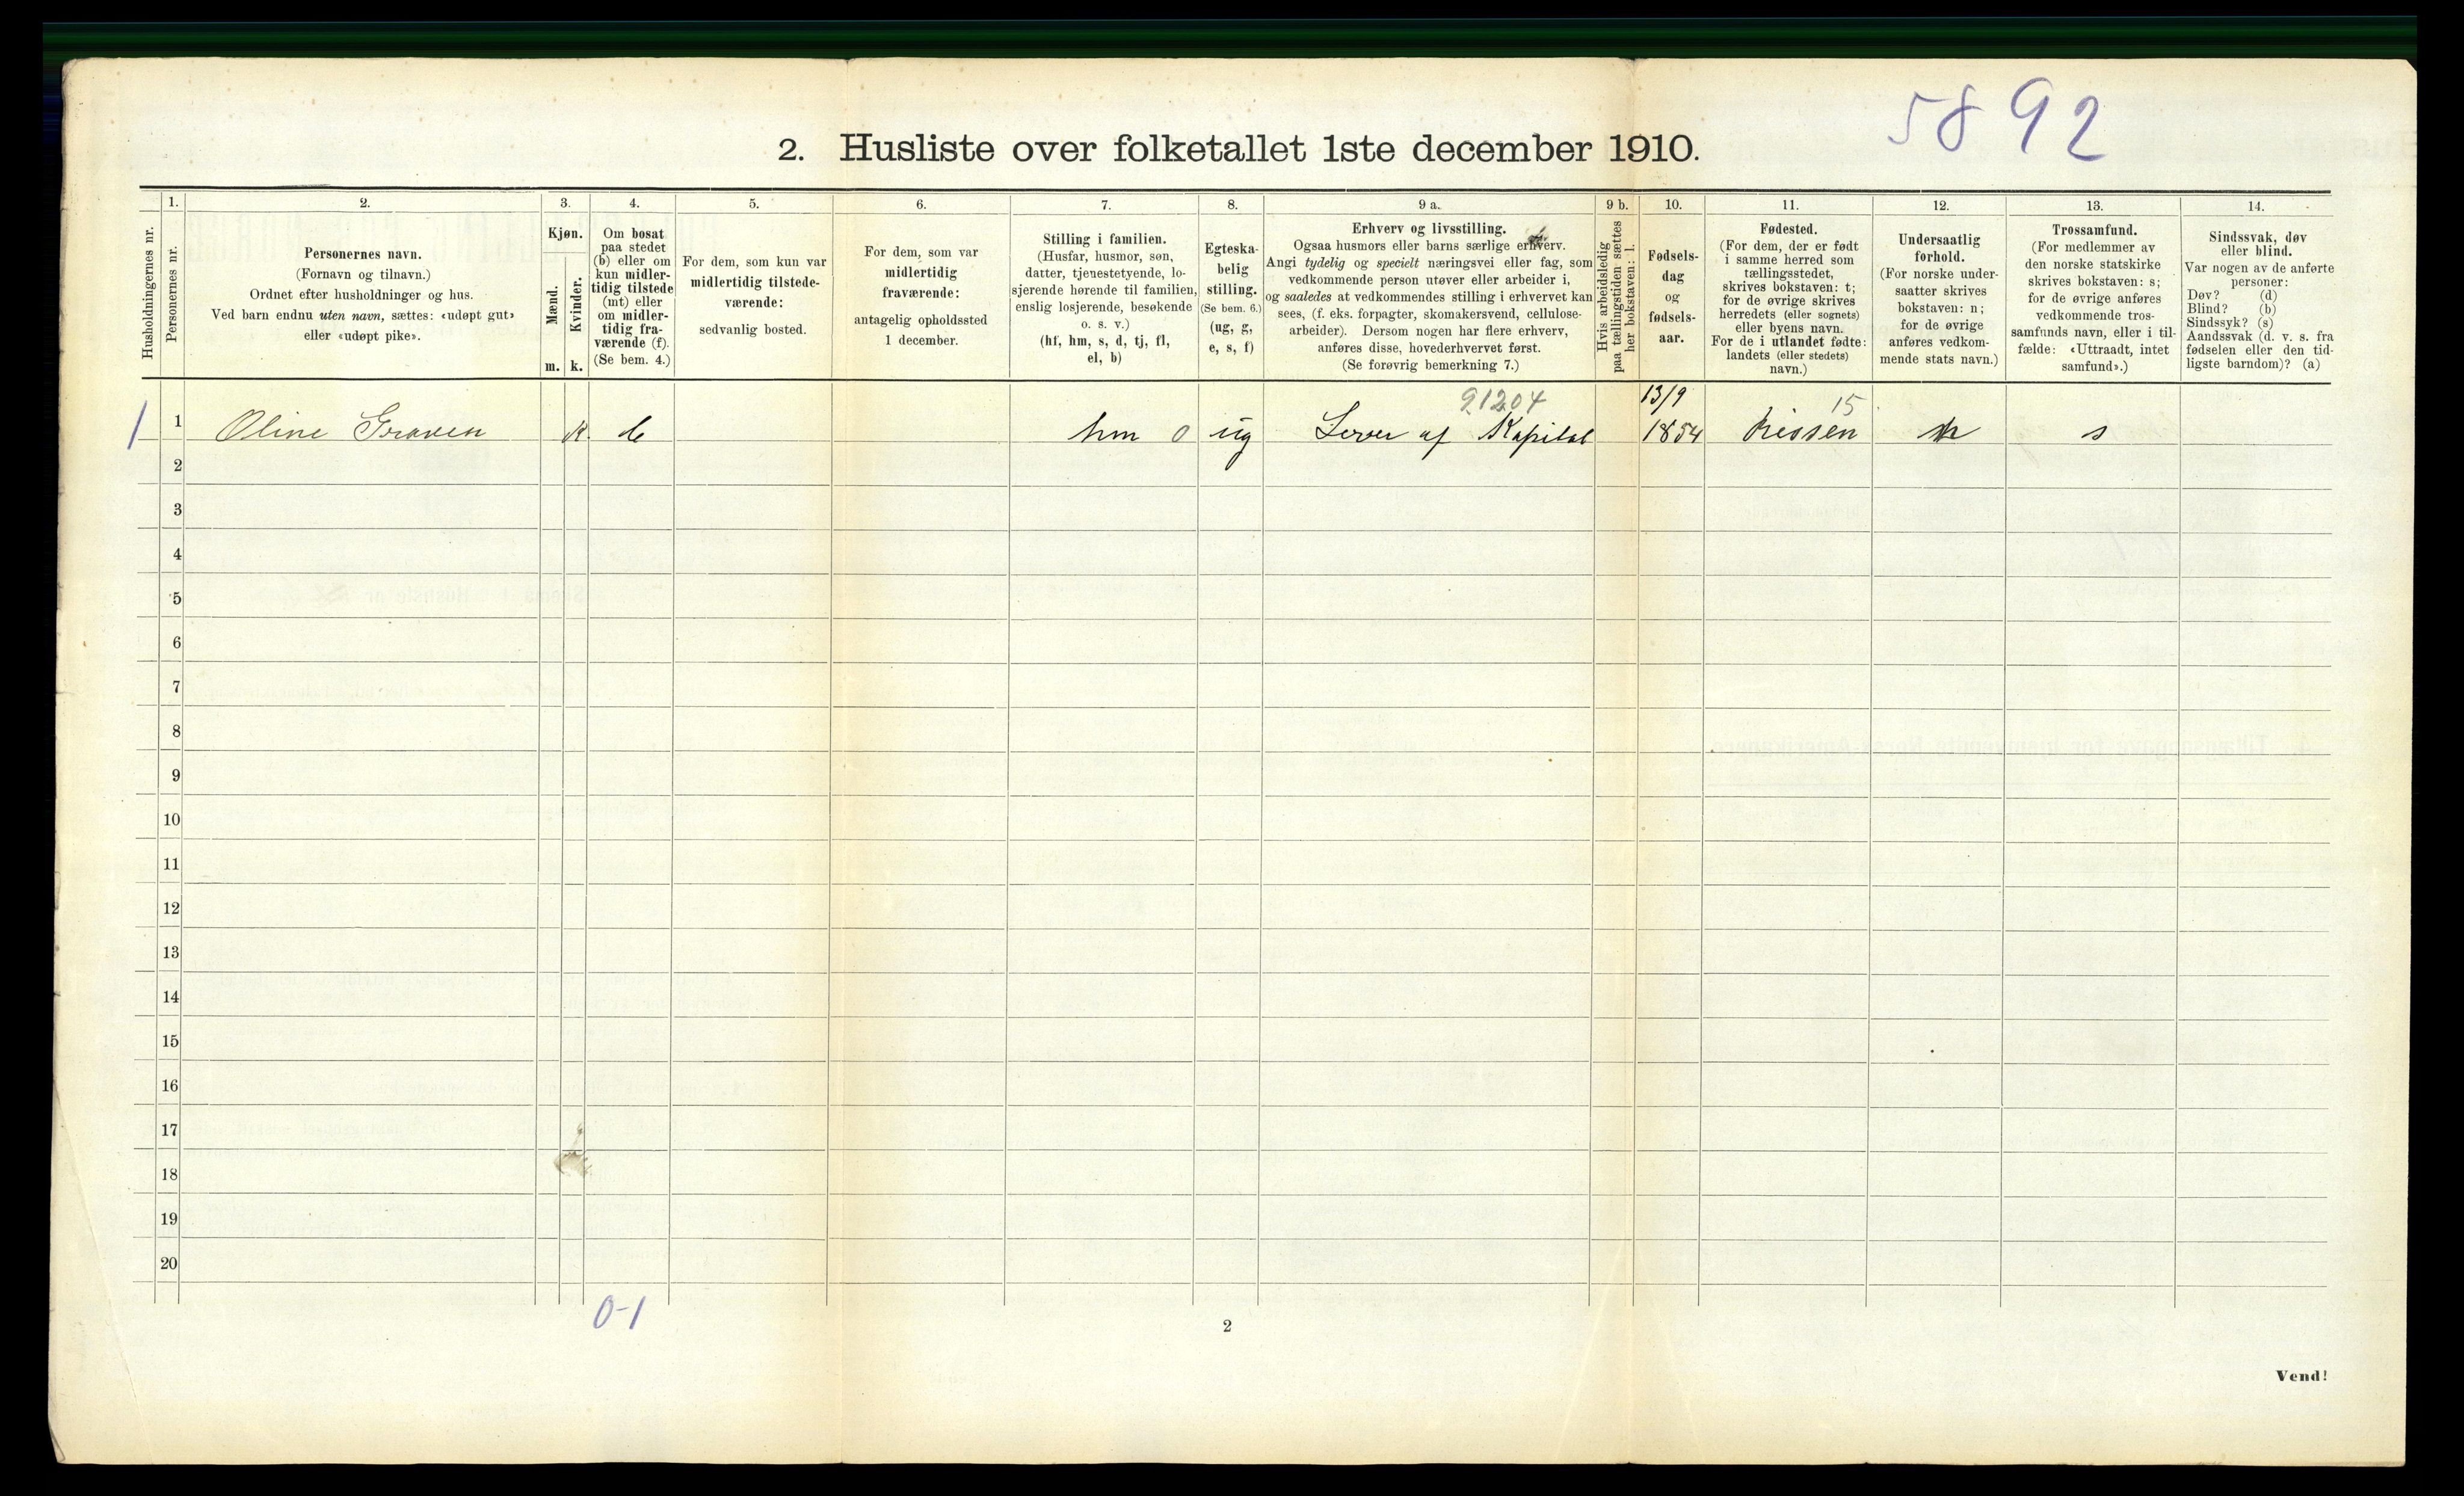 5892
2. Husliste over folketallet 1ste december 1910.
Husholdningernes nr.
1.
Personernes nr.
2.
Personernes navn.
(Fornavn og tilnavn.)
Ordnet efter husholdninger og hus.
Ved barn endnu uten navn, sættes: «udøpt gut»
eller «udøpt pike».
3.
Kjøn.
Mænd.
Kvinder.
m. k.
4.
Om bosat
paa stedet
(b) eller om
kun midler-
tidig tilstede
(mt) eller
om midler-
tidig fra-
værende (f).
(Se bem. 4.)
5.
For dem, som kun var
midlertidig tilstede-
værende:
sedvanlig bosted.
6.
For dem, som var
midlertidig
fraværende:
antagelig opholdssted
1 december.
7.
Stilling i familien.
(Husfar, husmor, søn,
datter, tjenestetyende, lo-
sjerende hørende til familien,
enslig losjerende, besøkende
o. s. v.)
(hf, hm, s, d, tj, fl,
el, b)
8.
Egteska-
belig
stilling.
(Se bem. 6.)
(ug, g,
e, s, f)
9 a.
Erhverv og livsstilling.
Ogsaa husmors eller barns særlige erhverv.
Angi tydelig og specielt næringsvei eller fag, som
vedkommende person utøver eller arbeider i,
og saaledes at vedkommendes stilling i erhvervet kan
sees, (f. eks. forpagter, skomakersvend, cellulose-
arbeider). Dersom nogen har flere erhverv,
anføres disse, hovederhvervet først.
(Se forøvrig bemerkning 7.)
9 b.
Hvis arbeidsledig
paa tællingstiden sættes
her bokstaven: l.
10.
Fødsels-
dag
og
fødsels-
aar.
11.
Fødested.
(For dem, der er født
i samme herred som
tællingsstedet,
skrives bokstaven: t;
for de øvrige skrives
herredets (eller sognets)
eller byens navn.
For de i utlandet fødte:
landets (eller stedets)
navn.)
12.
Undersaatlig
forhold.
(For norske under-
saatter skrives
bokstaven: n;
for de øvrige
anføres vedkom-
mende stats navn.)
13.
Trossamfund.
(For medlemmer av
den norske statskirke
skrives bokstaven: s;
for de øvrige anføres
vedkommende tros-
samfunds navn, eller i til-
fælde: «Uttraadt, intet
samfund».)
14.
Sindssvak, døv
eller blind.
Var nogen av de anførte
personer:
Døv? (d)
Blind? (b)
Sindssyk? (s)
Aandssvak (d. v. s. fra
fødselen eller den tid-
ligste barndom)? (a)
91204 13/9 15
1 1 Oline Graven k b hm 0 ug Lever af Kapital 1854 Rissen n s
2
3
4
5
6
7
8
9
10
11
12
13
14
15
16
17
18
19
20
0-1
2
Vend!